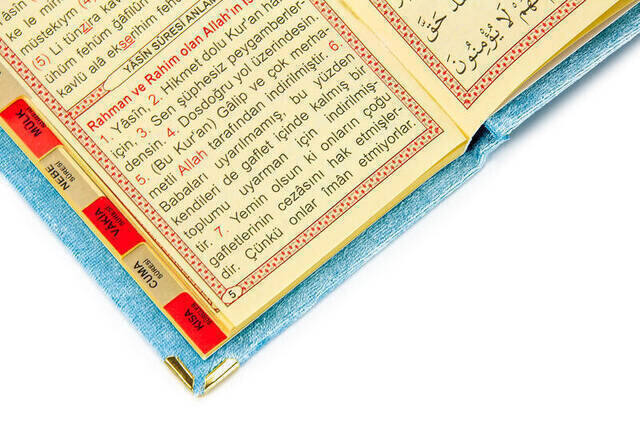 müstekıym
(5) Li tünzira kav
ühüm fehüm gâfilû
kavlü alâ ekserihim fehü
YÂSİN SÛRESİ ANLAM
Rahman ve Rahîm olan Allah'ın is
1. Yâsîn, 2. Hikmet dolu Kur'an ha
için, 3. Sen şüphesiz peygamberler-
densin. 4. Dosdoğru yol üzerindesin.
5. (Bu Kur'an) Gâlip ve çok merha-
metli Allah tarafından indirilmiştir. 6.
Babaları uyarılmamış, bu yüzden
kendileri de gaflet içinde kalmış bir
toplumu uyarman için indirilmiş-
tir. 7. Yemin olsun ki onların çoğu
gafletlerinin cezasını hak etmişler-
dir. Çünkü onlar îmân etmiyorlar.
5
لَا يُؤْمِنُونَ
MÜLK
SÛRESİ
NEBE
SÛRESİ
VAKIA
SÛRESİ
CUMA
SÛRESİ
KISA
SÛRELER